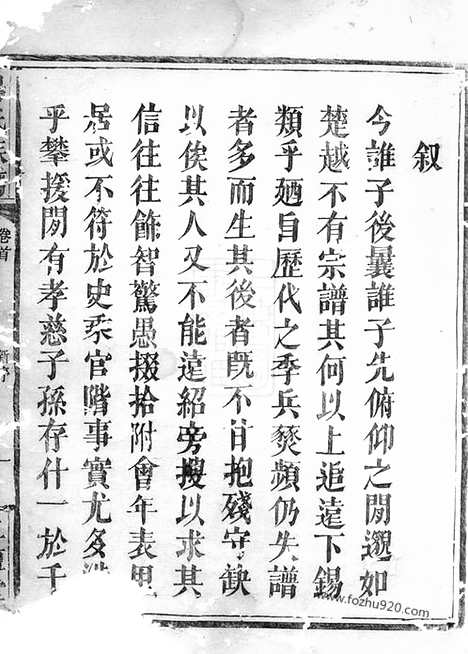 叙
今誰子後曩誰子先俯仰之閒邈如
楚越不有宗譜其何以上追遠下錫
類乎廼自歷代之季兵燹頻仍失譜
者多而生其後者旣不甘抱殘守缺
以俟其人又不能遠紹旁搜以求其
信往往飾智驚愚掇拾附會年表里
居或不符於史乘官階事實尤多
乎攀援閒有孝慈子孫存什一於千
卷首
新序
一
www.fozhu920.com